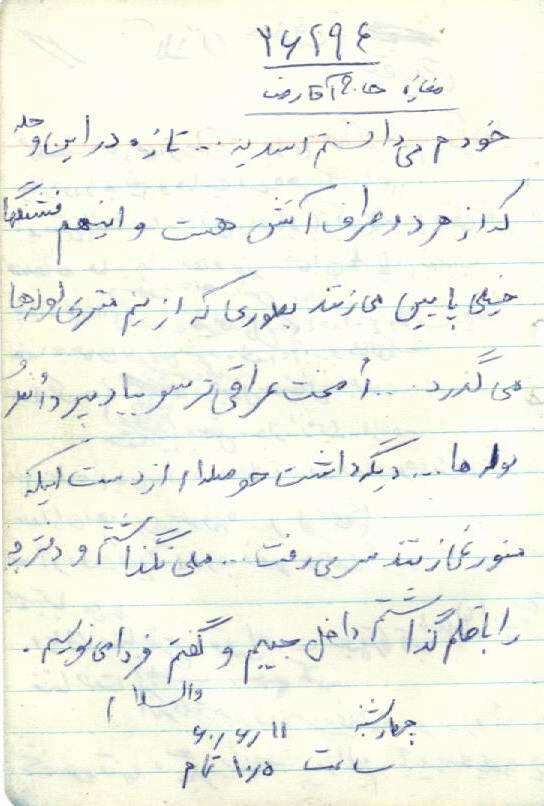 ۲۶۲۹۴
مغازه حاج آقا رضا
خودم می دانستم اسدیه ... تازه در این وهله
که از هر دو طرف آتش هست و اینهم فشنگها
خیلی پایین می زنند بطوری که از نیم متری لوله ها
می گذرد ... أ سخت عراقی ترسو بیاد بیر
لوله ها ... دیگه داشت حوصله ام از دست اینکه
منور نمی زنند سر می رفت ... ملی نگذاشتم و دفترچه
را با قلم گذاشتم داخل جیبم و گفتم فردا می نویسم .
والسلام
چهارشنبه ۶۰/۶/۱۱
ساعت ۱۰/۵ تمام